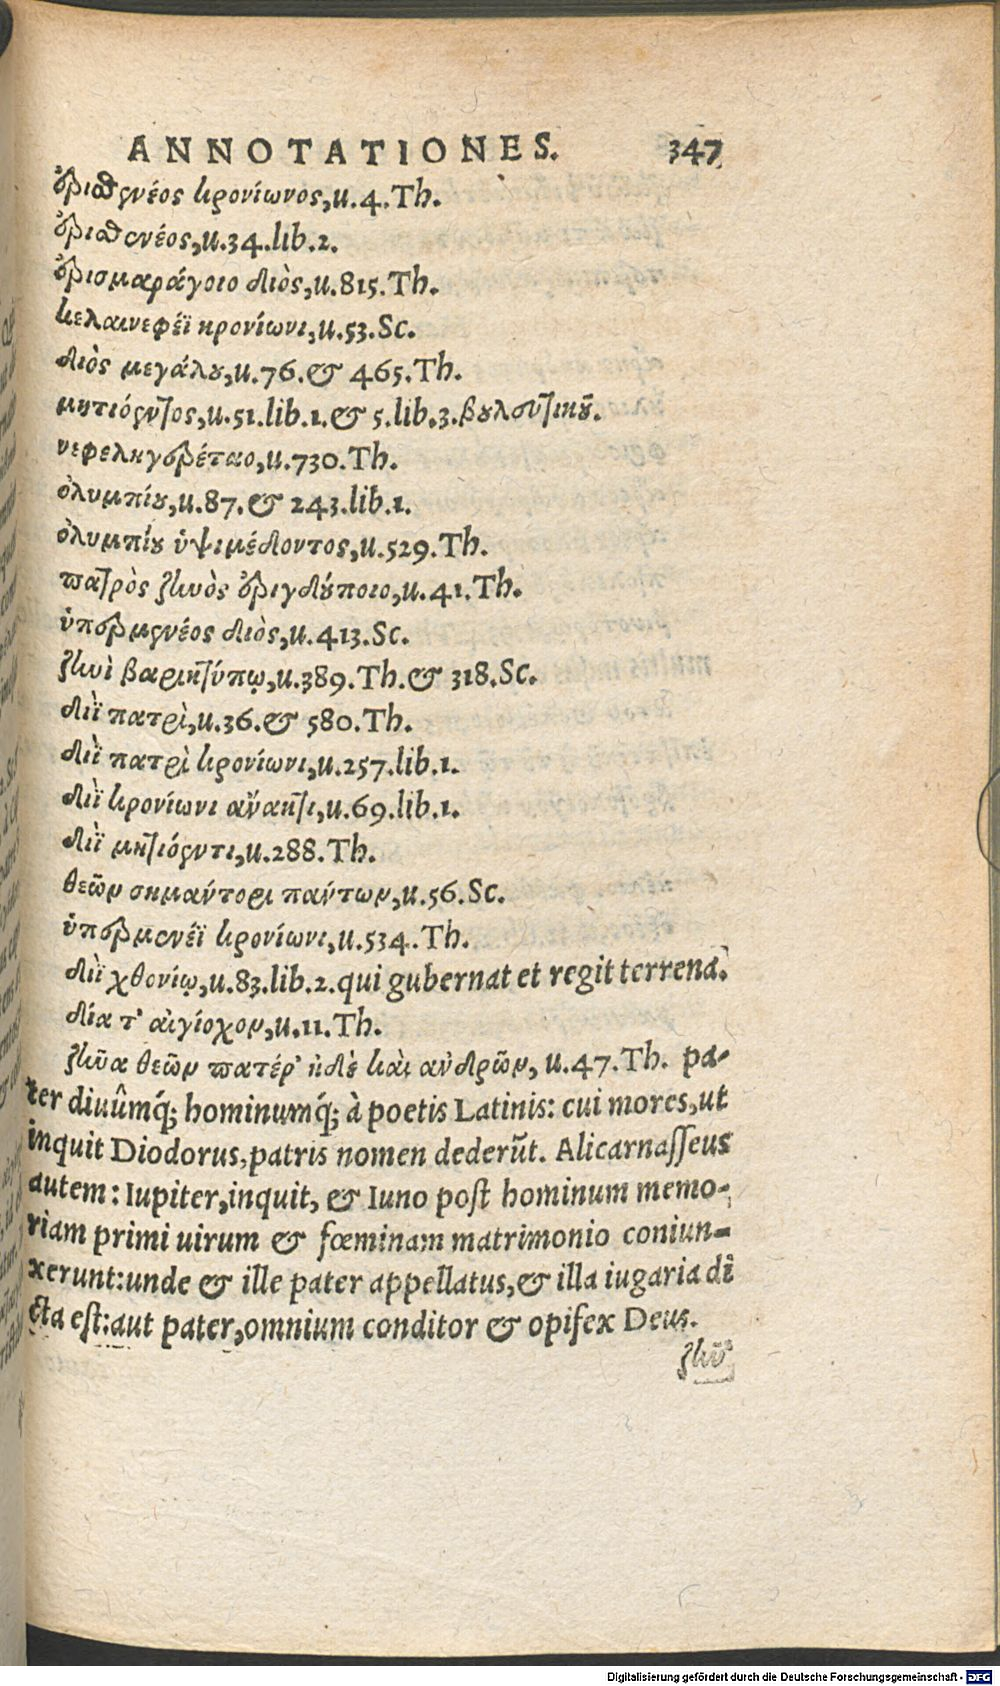 ANNOTATIONES. 347
ἐρισθενέος κρονίωνος,u.4.Th.
ἐρισθενέος,u.34.lib.2.
ἐρισμαράγοιο διὸς,u.815.Th.
κελαινεφέϊ κρονίωνι,u.53.Sc.
διὸς μεγάλου,u.76.& 465.Th.
μητιόεντος,u.51.lib.1.& 5.lib.3.βουλευτικοῦ.
νεφεληγερέταο,u.730.Th.
ὀλυμπίου,u.87.& 243.lib.1.
ὀλυμπίου ὑψιμέδοντος,u.529.Th.
πατρὸς ζηνὸς ἐριγδούποιο,u.41.Th.
ὑπερμενέος διὸς,u.413.Sc.
ζηνὶ βαρικτύπῳ,u.389.Th.& 318.Sc.
διῒ πατρὶ,u.36.& 580.Th.
διῒ πατρὶ κρονίωνι,u.257.lib.1.
διῒ κρονίωνι ἄνακτι,u.69.lib.1.
διῒ μητιόεντι,u.288.Th.
θεῶν σημάντορι πάντων,u.56.Sc.
ὑπερμενέϊ κρονίωνι,u.534.Th.
διῒ χθονίῳ,u.83.lib.2.qui gubernat et regit terrena.
δία τ' αἰγίοχον,u.11.Th.
ζῆνα θεῶν πατέρ' ἠδὲ καὶ ἀνδρῶν, u.47.Th. pa-
ter diuûmq́; hominumq́; à poetis Latinis: cui mores,ut
inquit Diodorus,patris nomen dederūt. Alicarnasseus
autem: Iupiter,inquit, & Iuno post hominum memo-
riam primi uirum & fœminam matrimonio coniun-
xerunt:unde & ille pater appellatus,& illa iugaria di
cta est:aut pater,omnium conditor & opifex Deus.
ζηνὶ
Digitalisierung gefördert durch die Deutsche Forschungsgemeinschaft - DFG